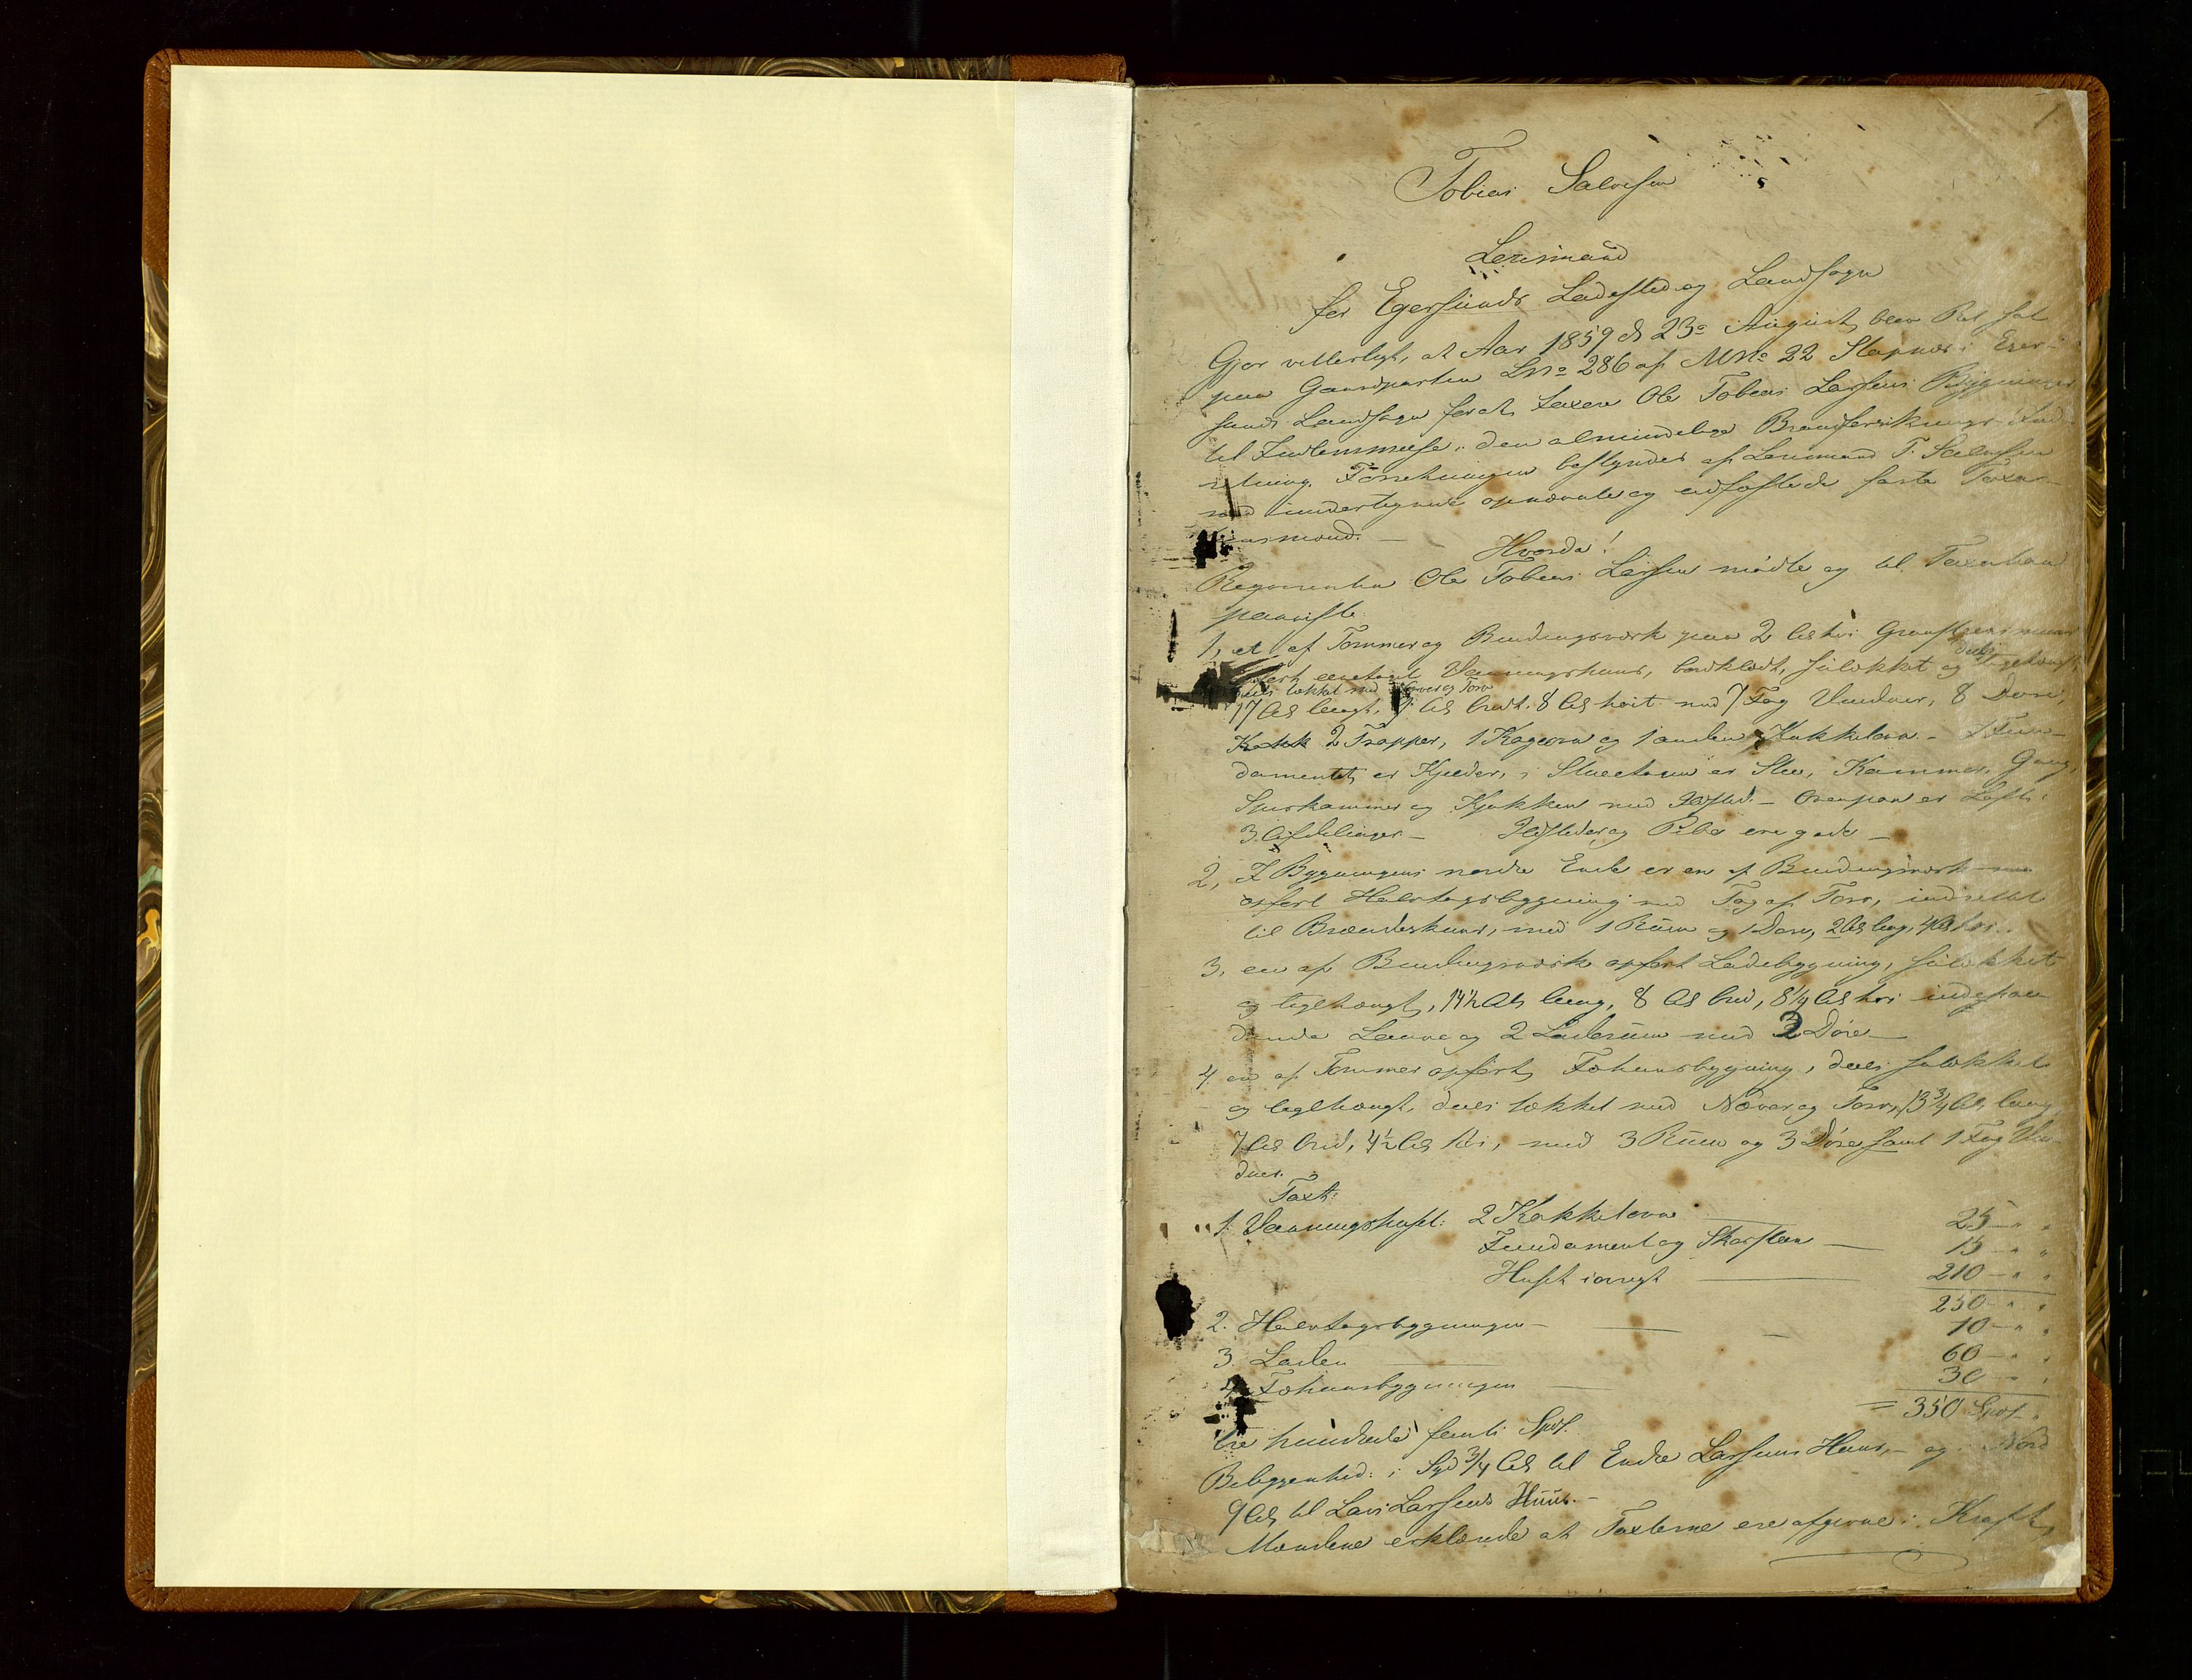 1
Tobias Salvesen
Lensmand
for Egersunds Ladested og Landsogn
Gjør vitterligt, at Aar 1859 d 23de August, blev Ret sat
paa Gaardparten LNo 286 af MNo 22 Slapnæs i Eger-
sunds Landsogn for at taxere Ole Tobias Larsens Bygninger
til Indlemmelse i den almindelige Brandforsikrings-Ind-
retning. Forretningen bestyredes af Lensmand T. Salvesen
med undertegnede opnævnte og edfæstede faste Taxa-
tionsmænd. —
Hvorda!
Reqvirenten Ole Tobias Larsen mødte og til Taxation
paaviste
1, et af Tømmer og Bindingsværk paa 2 Al høi Graasteensmuur
opført eenetages Vaaningshuus, bordklædt, sutækket og deels teglhængt,
deels tækket med Næver og Torv
17 Al langt, 9 Al bredt 8 Al høit med 7 Fag Vinduer, 8 Døre,
2 Trapper, 1 Kogeovn og 1 anden Kakkelovn. – I Fun-
damentet er Kjelder, i Stueetagen er Stue, Kammer, Gang,
Spiskammer og Kjøkken med Ildsted. – Ovenpaa er Loft i
3 Afdelinger – Ildsteder og Piber ere gode –
2, I Bygningens nordre Ende er en af Bindingsværk
opført Halvtagsbygning med Tag af Torv, indrettet
til Brændeskuur, med 1 Rum og 1 Dør, 2 Al lang, 4 Al høi.
3, en af Bindingsværk opført Ladebygning, sutækket
og teglhængt, 14½ Al lang, 8 Al bred, 8¼ Al høi indehol-
dende Laave og 2 Laderum med 2 Døre –
4 en af Tømmer opført Fæhuusbygning, deels sutækket
og teglhængt, deels tækket med Næver og Torv, 13¾ Al lang,
7 Al bred, 4½ Al høi, med 3 Rum og 3 Døre samt 1 Fag Vin-
duer.
Taxt:
1. Vaaningshuset: 2 Kakkelovne 25 – " "
Fundament og Skorsteen — 15 – " "
Huset iøvrigt — 210 – " "
250 – " "
2. Halvtagsbygningen — 10 – " "
3. Laden — 60 – " "
4. Fæhuusbygningen — 30 – " "
= 350 Spd. "
tre hundrede femti Spd.
Beliggenhed: i Syd ¾ Al til Endre Larsens Huus, – og i Nord
9 Al til Lars Larsens Huus. –
Mændene erklærede at Taxterne ere afgivne i Kraft